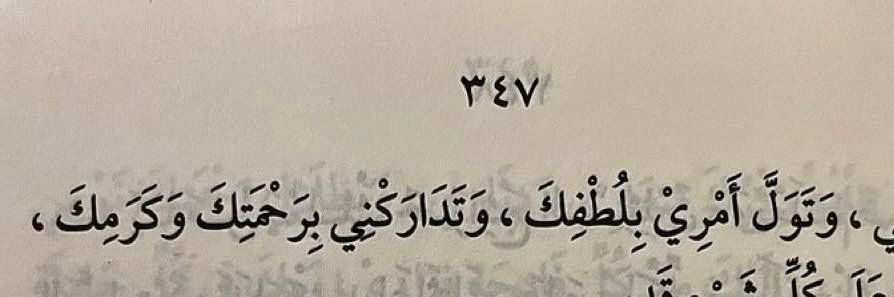 ٣٤٧
، وَتَوَلَّ أَمْرِيْ بِلُطْفِكَ ، وَتَدَارَكْنِي بِرَحْمَتِكَ وَكَرَمِكَ ،
كُلِّ